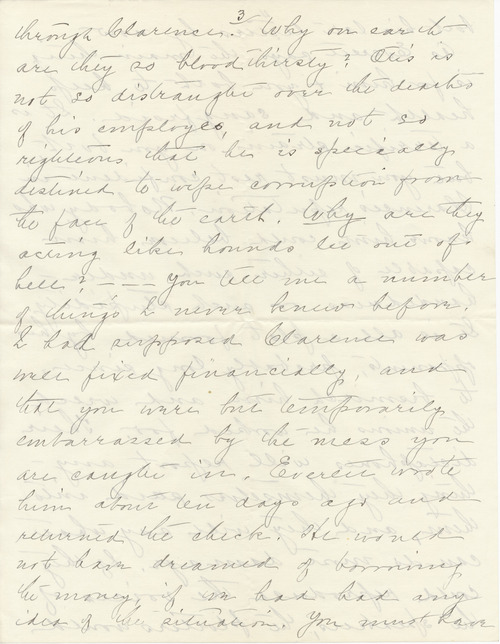 3
through Clarence. Why on earth
are they so bloodthirsty? Otis is
not so distraught over the deaths
of his employes, and not so
righteous that he is specially
destined to wipe corruption from
the face of the earth. Why are they
acting like hounds let out of
hell? - - - You tell me a number
of things I never knew before.
I had supposed Clarence was
well fixed financially, and
that you were but temporarily
embarrassed by the mess you
are caught in. Everett wrote
him about ten days ago and
returned the check. He would
not have dreamed of borrowing
the money, if we had had any
idea of the situation. You must have